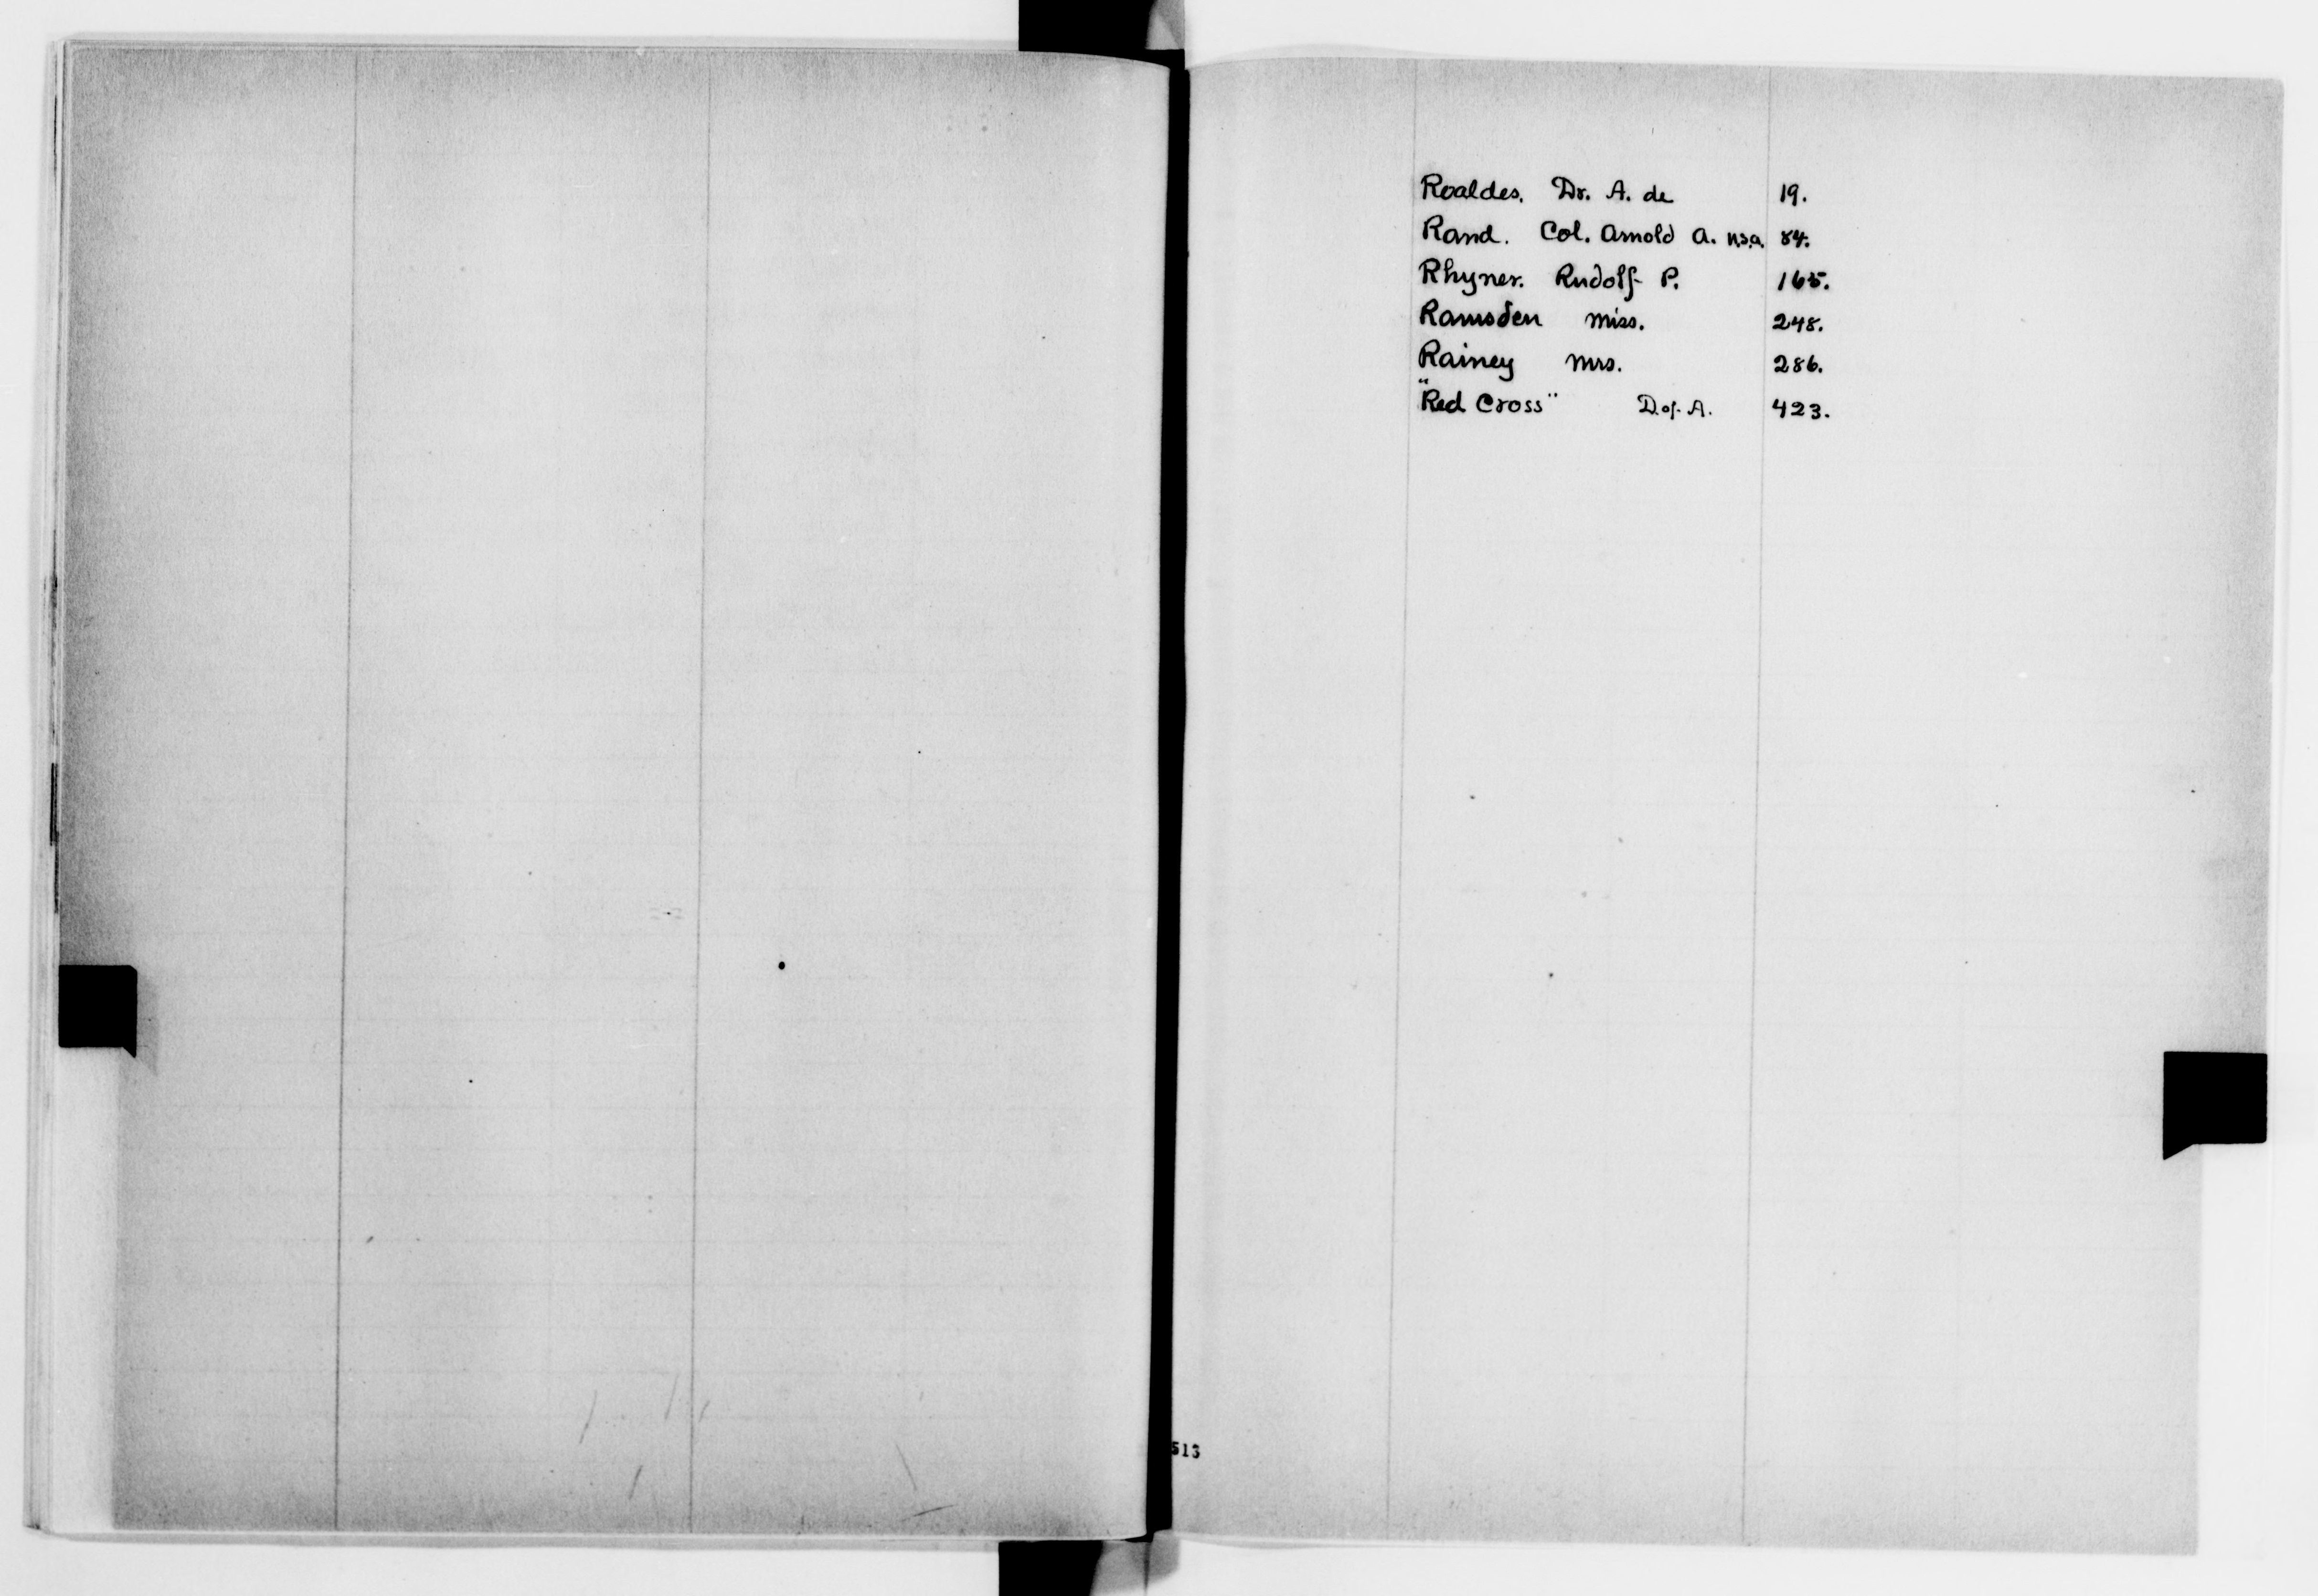 Roaldes. Dr. A. de 19.
Rand. Col. Arnold A. U.S.A. 84.
Rhyner. Rudolf P. 165.
Ramsden Miss. 248.
Rainey Mrs. 286.
"Red Cross" D. of A. 423.
513